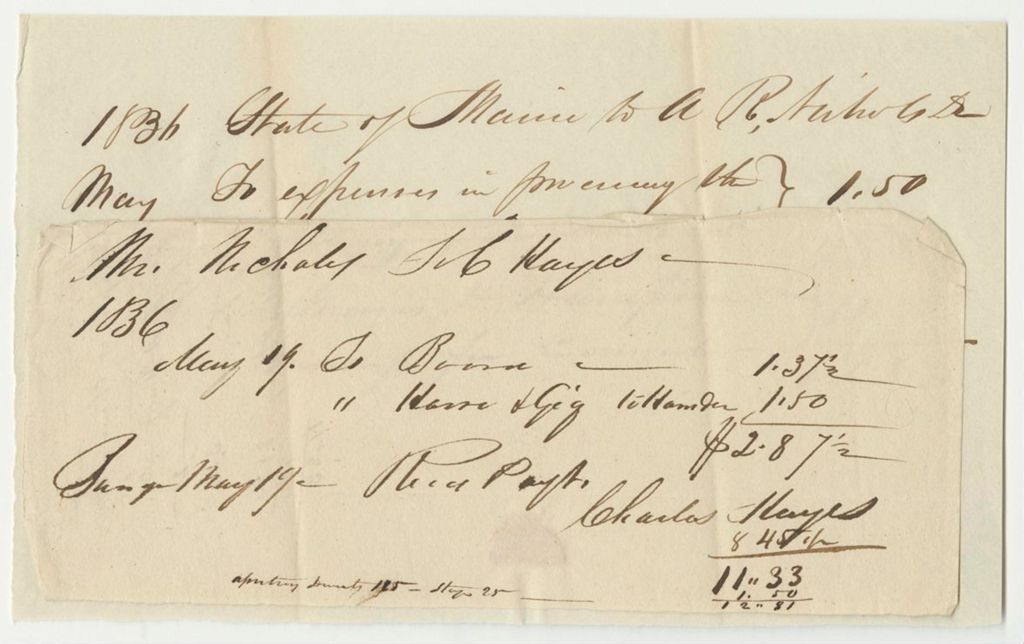 1836 State of Maine to A R, Nichols Dr
May To expenses in procuring the } 1.50
Mr. Nichols To C Hayes
1836
May 19. To Board 1.37½
" Horse & Gig to Hamden 1.50
$2.87½
Bangor May 19 Recd Payt.
Charles Hayes
8 45½
11"33
1.50
12"81
25